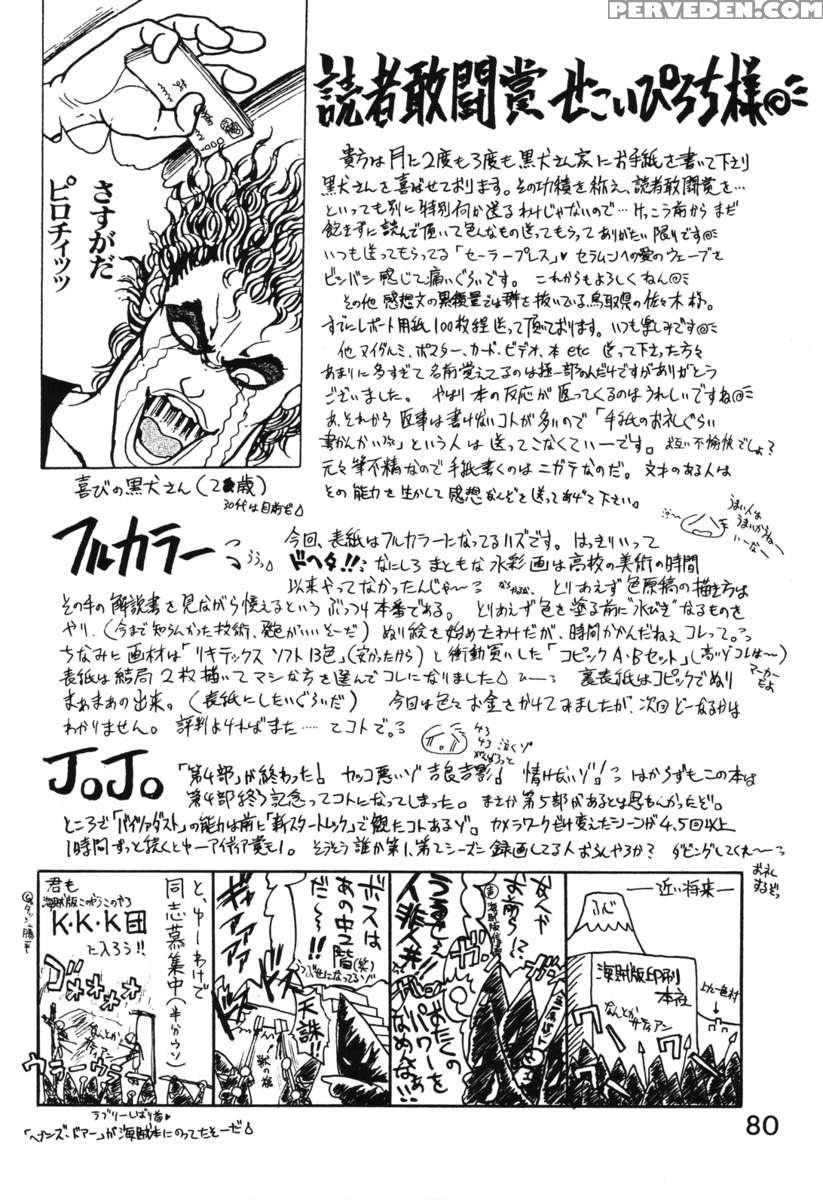 PERVEDEN.COM
読者敢闘賞 せこいぴろち様
さすがだ
ピロチィッッ
喜びの黒犬さん(2歳)
30代は目前だ
貴方は月に2度も3度も黒犬さん家にお手紙を書いて下さり
黒犬さんを喜ばせております。その功績を称え、読者敢闘賞を…
といっても別に特別何か送るわけじゃないので…けっこう前からまだ
飽きずに読んで頂いて色んなもの送ってもらってありがたい限りです
いつも送ってもらってる「セーラープレス」♥セラムンへの愛のウェーブを
ビンバシ感じて痛いぐらいです。これからもよろしくねん
その他感想文の累積量では群を抜いている鳥取県の佐々木様。
すでにレポート用紙100枚程送って頂ております。いつも楽しみです
他ヌイグルミ、ポスター、カード、ビデオ、本etc 送って下さった方々
あまりに多すぎて名前覚えてるのは極一部なんだけですがありがとう
ございました。やはり本の反応が返ってくるのはうれしいですね
あ、それから返事は書けないコトが多いので「手紙のお礼ぐらい
書かんかい」という人は送ってこなくていーです。お互い不愉快でしょ?
元々筆不精なので手紙書くのはニガテなのだ。文才のある人は
その能力を生かして感想なんぞを送ってあげて下さい。
うまい人は
うまいからねー
いーなー
フルカラー
今回、表紙はフルカラーになってるハズです。はっきりいって
ドヘタ!!なにしろまともな水彩画は高校の美術の時間
以来やってなかったんじゃ〜 とりあえず色原稿の描き方は
その手の解説書を見ながら憶えるというぶっつけ本番である。とりあえず色を塗る前に"水びき"なるものを
やり、(今まで知らんかった技術、発色がいいそーだ)ぬり絵を始めたわけだが、時間かかんだねぇコレって。
ちなみに画材は「リキテックス ソフト13色」(安かったから)と衝動買いした「コピックA・Bセット」(高いゾコレは〜)
マーカーだよ
表紙は結局2枚描いてマシな方を選んでコレになりました 裏表紙はコピックでぬり
まぁまぁの出来。(表紙にしたいぐらいだ) 今回は色々お金をかけてみましたが、次回どーなるかは
わかりません。評判よければまた……てコトで。
JoJo
「第4部」が終わった! カッコ悪いゾ吉良吉影! 情けないゾ! はからずもこの本は
第4部終了記念ってコトになってしまった。まさか第5部があるとは思わんかったぞ。
ところで「バイツァダスト」の能力は前に「新スタートレック」で観たコトあるゾ。カメラワークだけ変えたシーンが4、5回以上
1時間ずっと続くとゆーアイディア賞もの。そうそう誰か第1、第2シーズン録画してる人おらんやろか? ダビングしてくれ〜
お礼するぞっ
―近い将来―
ふじ
海賊版印刷
本社
なんとか
なんか
お前ら!?
うるせぇ
人非人共!!
おたくの
パワーを
なめんなよ!!
ボスは
あの中2階(笑)
だ〜っ
ギャアアァァ
天誅!!
と、ゆーわけで
同志募集中(半分ウソ)
君も
海賊版このやろこのやろ
K.K.K団
に入ろう!!
ゴオオオオ
ウラーウラーウラー
ラブリーしおり者♥
「ヘブンズ・ドアー」が海賊本にのってたそーだ
80